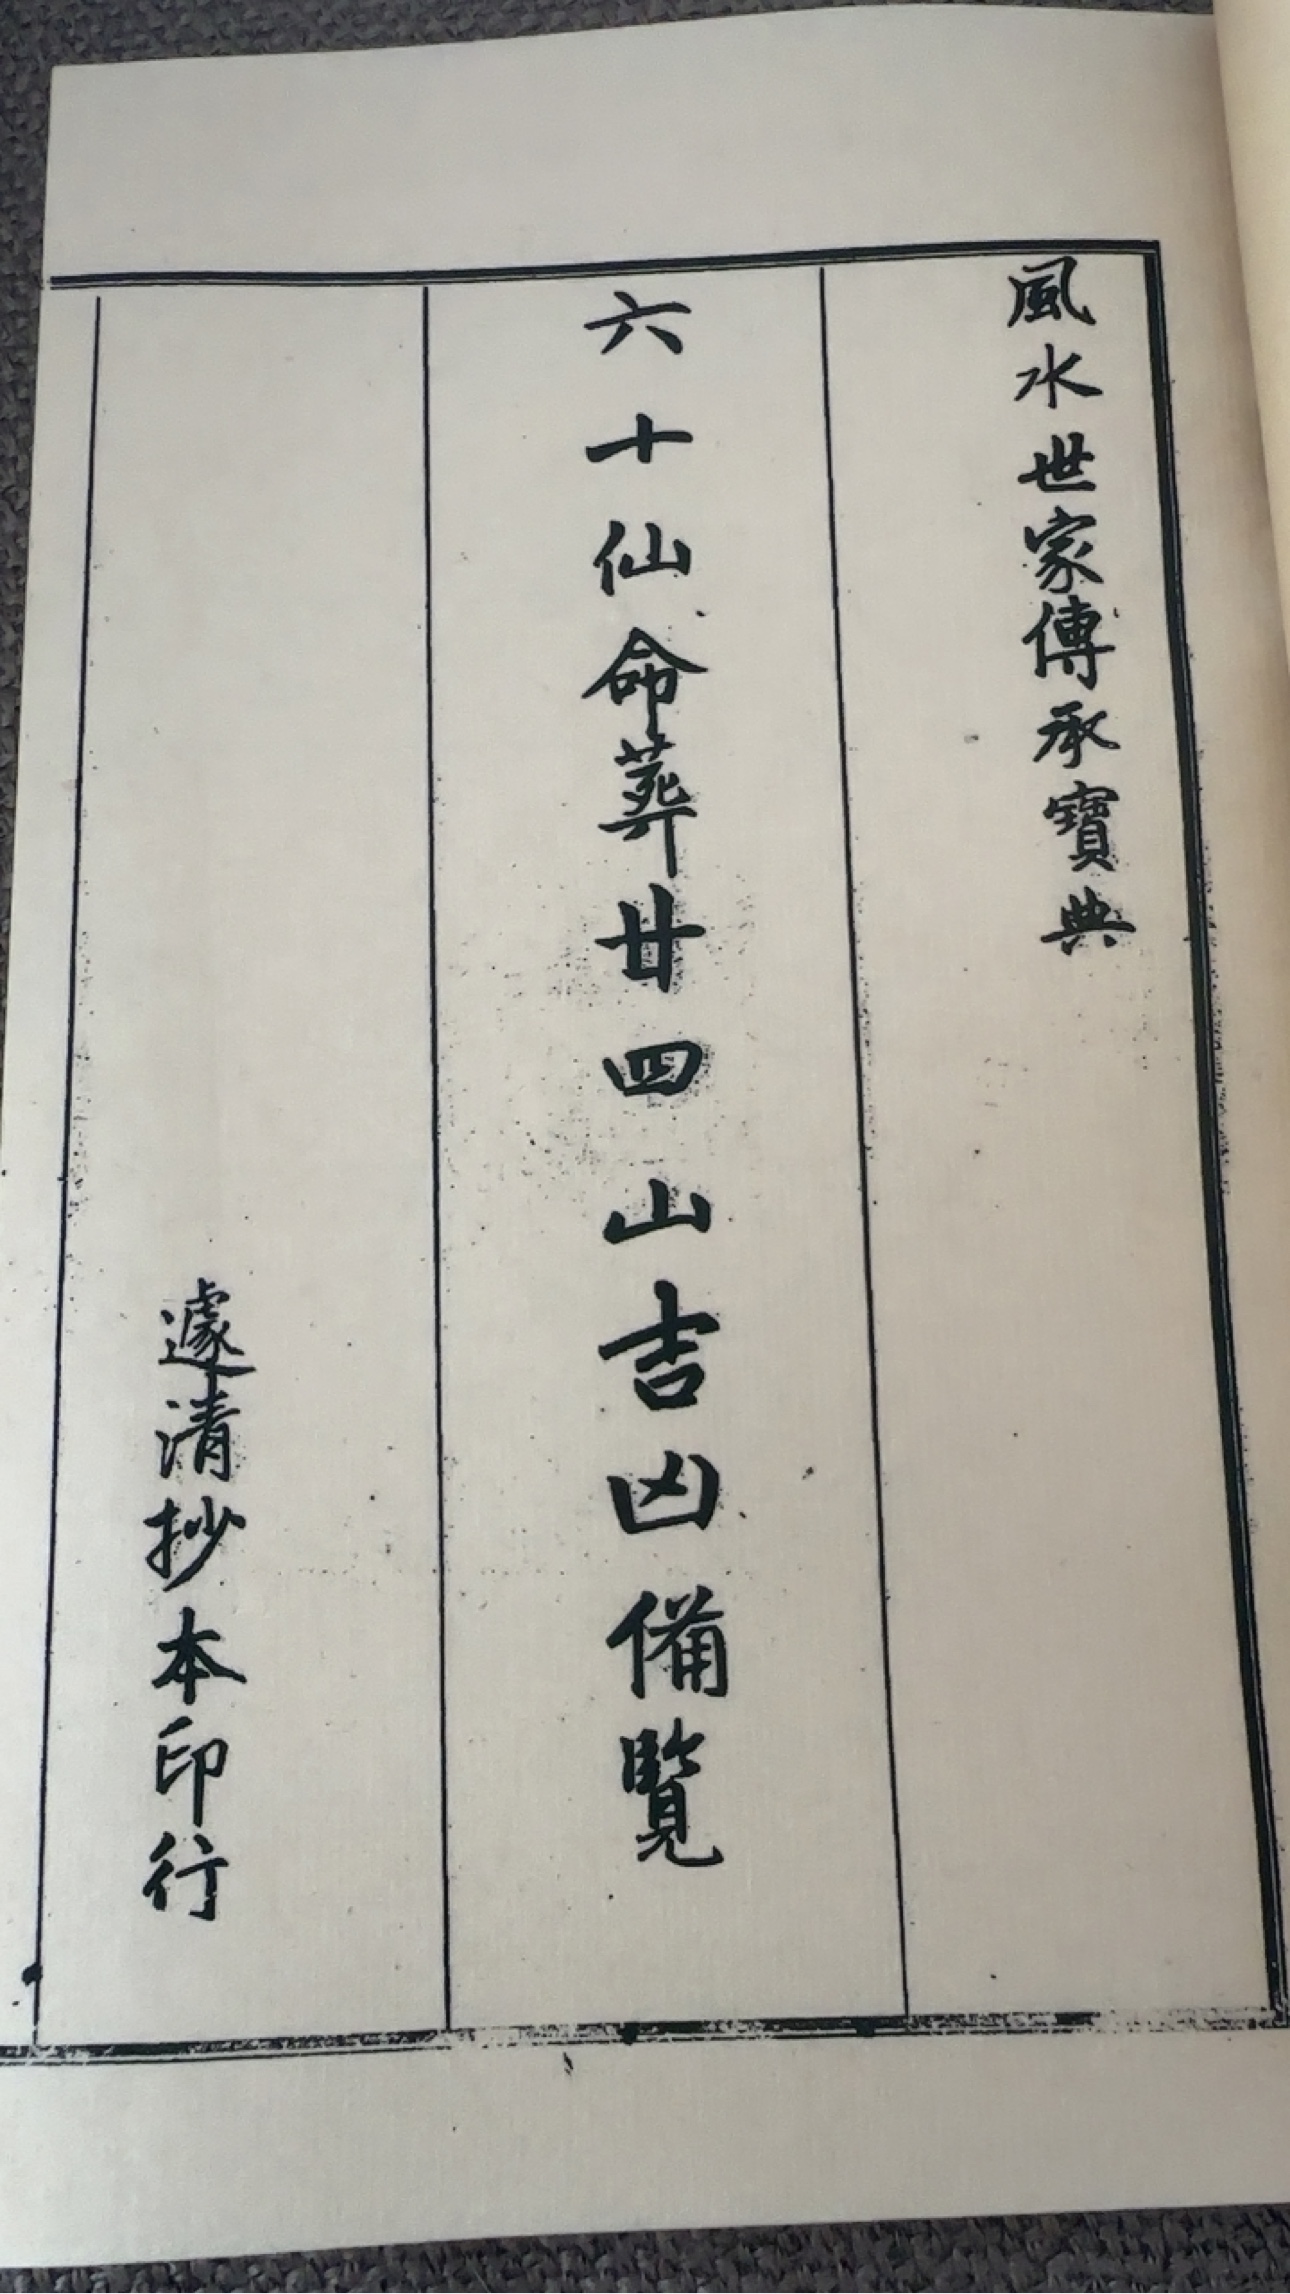 風水世家傳承寶典
六十仙命葬廿四山吉凶備覽
遽清抄本印行